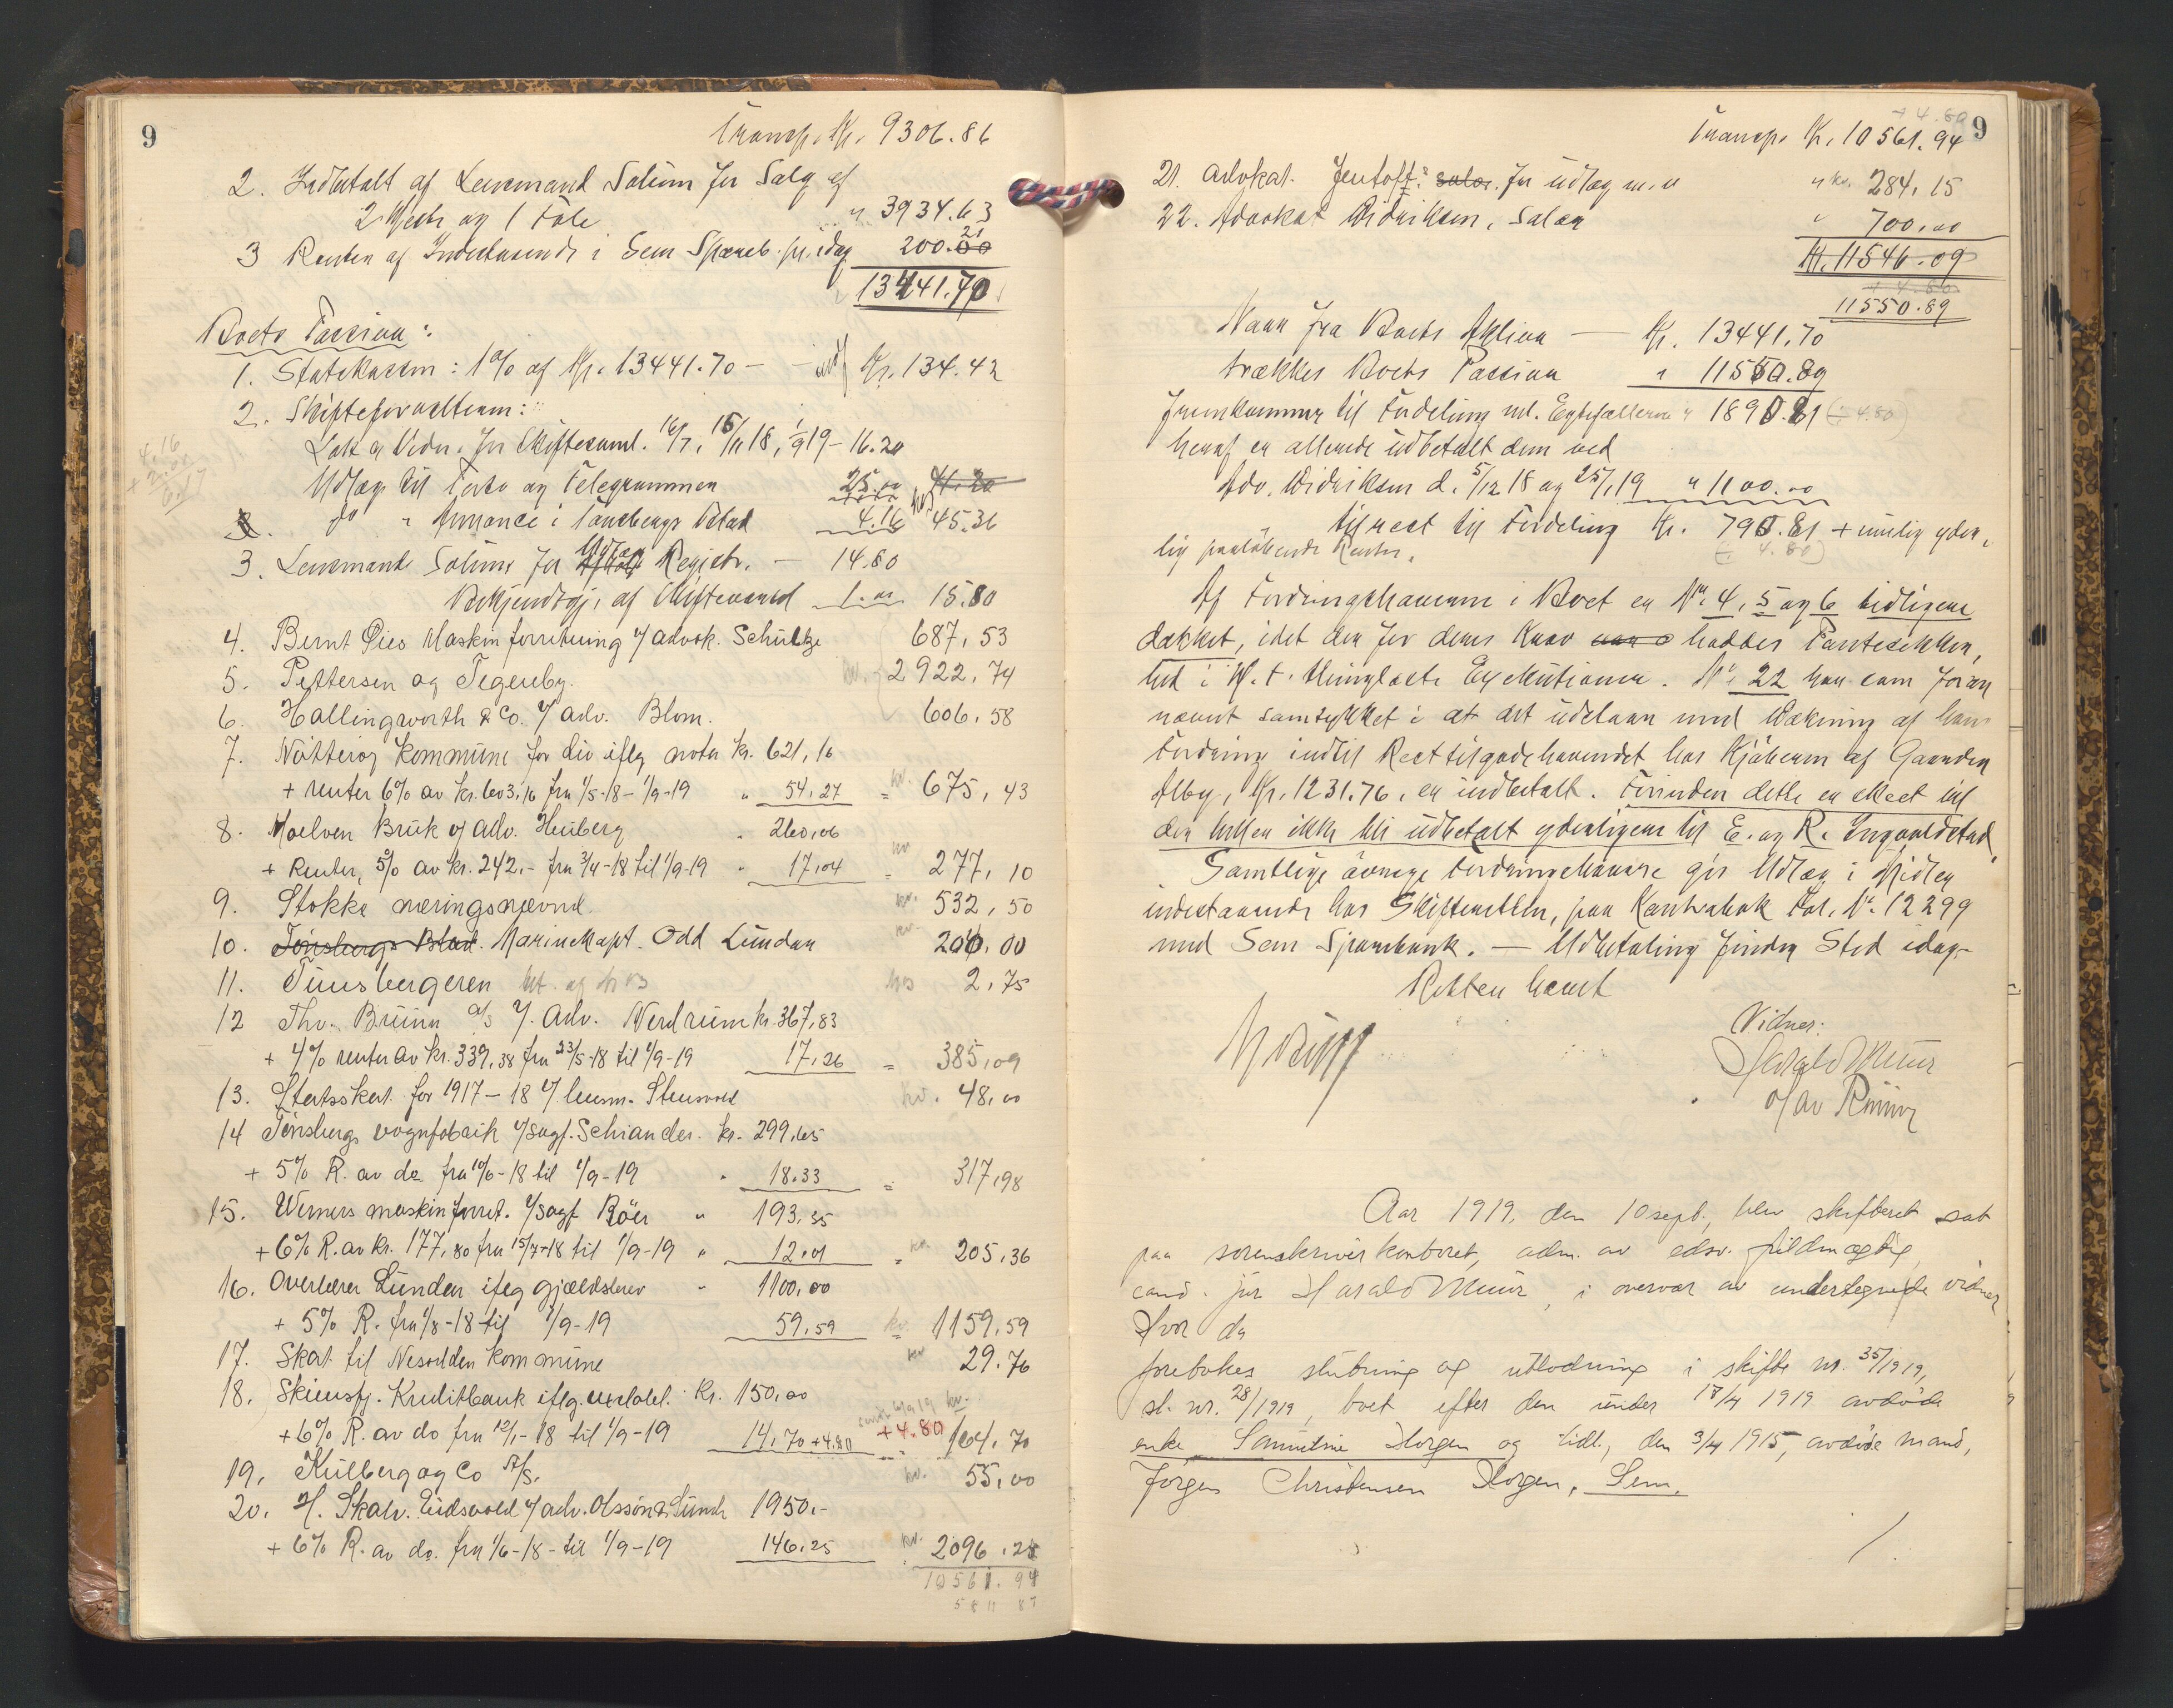 9
Transp. Kr. 9306.86
2. Indbetalt af Lensmand Solum for Salg af
2 Heste og 1 Føle " 3934.63
3 Renter af Indestaaende i Sem Spareb. pr. idag 200.21
13441.70
Boets Passiva:
1. Statskassen: 1% af Kr. 13441.70 — Kr. 134.42
2. Skifteforvalteren:
Lok og Vidn. for Skiftesaml. 16/7, 15/11 18, 1/9 19 – 16.20
Udlæg til Porto og Telegrammer 25.00 41.20
do " Annonce i Tønsbergs Blad 4.16 45.36
4.16
3. Lensmand Solum for Udlæg Registr. — 14.80
Bekjendtgj. af Skiftevarsel 1.00 15.80
4. Bernt Øies Maskinforretning v/ advok. Schultze 687,53
5. Pettersen og Tegenby. 2922,74
6. Hallingworth & Co. v/ adv. Blom. 606,58
7. Nøtterøy kommune for div iflg nota kr. 621,16
+ renter 6% av kr. 603,16 fra 1/5-18 – 1/9-19 " 54,27 = 675,43
8. Moelven Bruk v/ adv. Heiberg " 260,06
+ Renter, 5% av kr. 242.- fra 3/4-18 til 1/9-19 " 17,04 = 277,10
9. Stokke næringsnævnd. 532,50
10. Tønsbergs Blad. Marinekapt. Odd Lundan 200,00
11. Tunsbergeren 2,75
12 Thv. Bruun a/s v/. adv. Nerdrum kr. 367,83
+ 4% renter av kr. 339,38 fra 23/5-18 til 1/9-19 17,26 = 385,09
13. Statsskat for 1917–18 v/ lensm. Stensvold 48,00
14 Tønsbergs vognfabrik v/sagf. Schiander. kr. 299,65
+ 5% R. av do fra 10/6-18 til 1/9-19 " 18.33 = 317,98
15. Werners maskinforret. v/sagf Röer " 193,35
+ 6% R. av kr. 177,80 fra 15/7-18 til 1/9-19 " 12,01 = 205,36
16. Overlærer Lunden iflg gjældsbrev " 1100,00
+ 5% R. fra 1/8-18 til 1/9-19 59,59 1159,59
17. Skat til Nesodden kommune 29.76
18. Skiensfj. Kreditbank iflg. Kr. 150,00
+ 6% R. av do fra 12/1-18 til 1/9-19 14,70 + 4.80 + 4.80 164,70
19. Kulberg og Co A/S. 55,00
20. H. Skalv. Eidsvold v/ adv. Olssøn & Lund 1950.-
+ 6% R. av do. fra 1/6-18 – til 1/9-19 146,25 2096,25
10561.94
58 11 87
9
+ 4.80
Transp. Kr. 10561.94
21. Advokat Jentoft: salær. for utlæg m.v " 284,15
22. Advokat Didriksen, Salær " 700,00
Kr. 11546.09
+ 4.80
11550.89
Naar fra Boets Aktiva — Kr. 13441.70
trækkes Boets Passiva " 11550.89
fremkommer til Fordeling ml. Egtefællerne " 1890.81 (÷ 4.80)
heraf er allerede udbetalt dem ved
Adv. Didriksen d. 5/12 18 og 25/1 19 " 1100.00
tilrest til Fordeling Kr. 790.81 + mulig yder-
(÷ 4.80)
lig paaløbende Renter.
Af Fordringshaverne i Boet er Nr. 4, 5 og 6 tidligere
dækket, idet der for deres Krav haddes Pantesikker-
het i H. t. thinglæste Exekutioner. Nr. 22 har som foran
nævnt samtykket i at det udestaar med Dækning af hans
Fordring indtil Resttilgodehavendet hos Kjøberen af Gaarden
Alby, Kr. 1231.76, er indbetalt. Forinden dette er skeet vil
der heller ikke bli udbetalt yderligere til E. og R. Ingvaldstad.
Samtlige øvrige Fordringshavere gis Udlæg i Midler
indestaaende hos Skifteretten, paa Kontrabok Fol. Nr. 12299
med Sem Sparebank. — Udbetaling finder Sted idag.
Retten hævet
Vidner:
Harald Muur
Olav Riiner
Aar 1919, den 10 sept., blev skifteret sat
paa sorenskriverkontoret, adm. av edsv. fuldmægtig
cand. jur Harald Muur, i overvær av undertegnede vidner
Hvor da
forebokes slutning og utlodning i skifte nr. 35/1919,
sl. nr. 28/1919, boet efter den under 17/4 1919 avdøde
enke Samuline Horgen og tidl., den 3/4 1915, avdøde mand,
Jørgen Christensen Horgen, Sem.